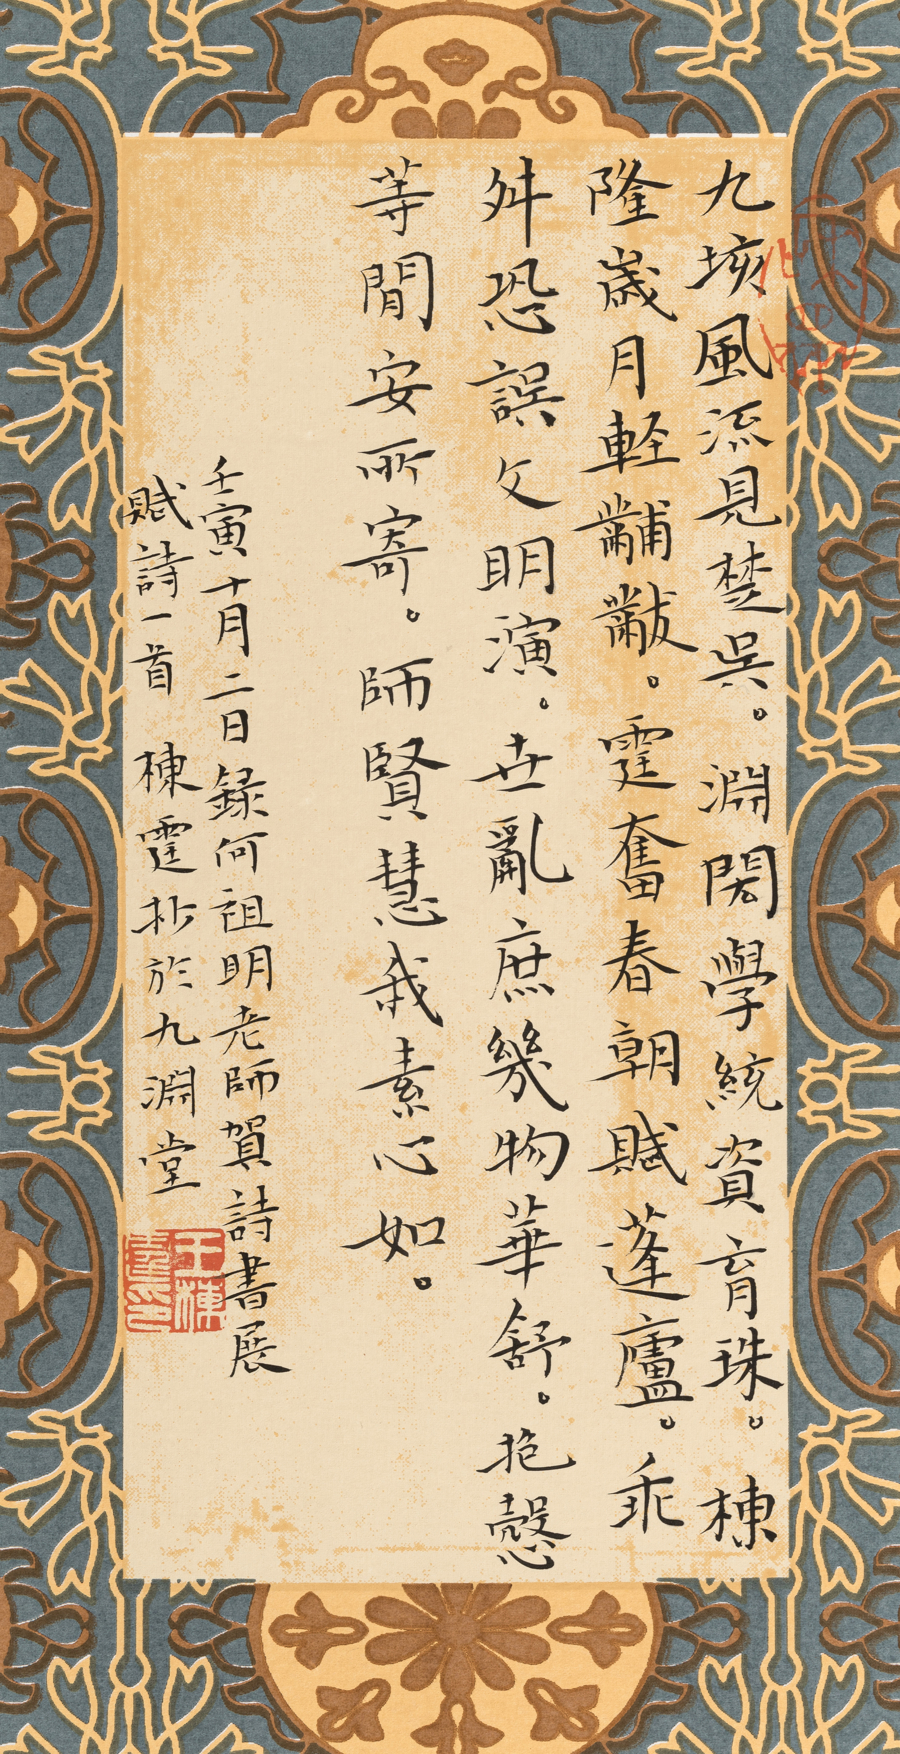 九垓風流見楚吳。淵閎學統資育珠。棟
隆歲月輕黼黻。霆奮春朝賦蓬廬。乖
舛恐誤文明演。世亂庶幾物華舒。抱愨
等閒安所寄。師賢慧哉素心如。
壬寅十月二日錄何祖明老師賀詩書展
賦詩一首 棟霆抄於九淵堂
王棟霆印